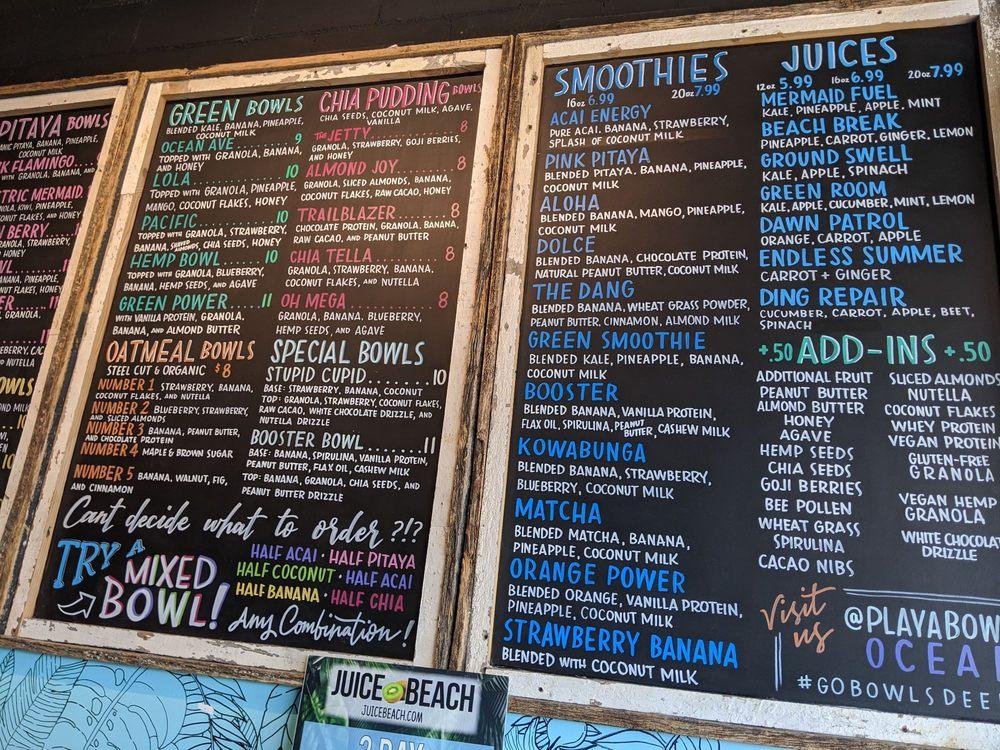 PITAYA BOWLS
PITAYA, BANANA, PINEAPPLE,
COCONUT MILK
FLAMINGO
WITH GRANOLA, BANANA, AND
MERMAID
GRANOLA, KIWI, PINEAPPLE,
COCONUT FLAKES, AND HONEY
BERRY
GRANOLA, STRAWBERRY,
AND HONEY
BANANA, PINEAPPLE,
AND NUTELLA
BOWLS
GREEN BOWLS
BLENDED KALE, BANANA, PINEAPPLE,
COCONUT MILK
OCEAN AVE.............. 9
TOPPED WITH GRANOLA, BANANA,
AND HONEY
LOLA.................... 10
TOPPED WITH GRANOLA, PINEAPPLE,
MANGO, COCONUT FLAKES, HONEY
PACIFIC................ 10
TOPPED WITH GRANOLA, STRAWBERRY,
BANANA, SHAVED ALMONDS, CHIA SEEDS, HONEY
HEMP BOWL.......... 10
TOPPED WITH GRANOLA, BLUEBERRY,
BANANA, HEMP SEEDS, AND AGAVE
GREEN POWER......... 11
WITH VANILLA PROTEIN, GRANOLA,
BANANA, AND ALMOND BUTTER
OATMEAL BOWLS
STEEL CUT & ORGANIC $8
NUMBER 1 STRAWBERRY, BANANA,
COCONUT FLAKES, AND NUTELLA
NUMBER 2 BLUEBERRY, STRAWBERRY,
AND SLICED ALMONDS
NUMBER 3 BANANA, PEANUT BUTTER,
AND CHOCOLATE PROTEIN
NUMBER 4 MAPLE & BROWN SUGAR
NUMBER 5 BANANA, WALNUT, FIG,
AND CINNAMON
CHIA PUDDING BOWLS
CHIA SEEDS, COCONUT MILK, AGAVE,
VANILLA
THE JETTY................ 8
GRANOLA, STRAWBERRY, GOJI BERRIES,
AND HONEY
ALMOND JOY........... 8
GRANOLA, SLICED ALMONDS, BANANA,
COCONUT FLAKES, RAW CACAO, HONEY
TRAILBLAZER.......... 8
CHOCOLATE PROTEIN, GRANOLA, BANANA,
RAW CACAO, AND PEANUT BUTTER
CHIA TELLA............ 8
GRANOLA, STRAWBERRY, BANANA,
COCONUT FLAKES, AND NUTELLA
OH MEGA............... 8
GRANOLA, BANANA, BLUEBERRY,
HEMP SEEDS, AND AGAVE
SPECIAL BOWLS
STUPID CUPID........ 10
BASE: STRAWBERRY, BANANA, COCONUT
TOP: GRANOLA, STRAWBERRY, COCONUT FLAKES,
RAW CACAO, WHITE CHOCOLATE DRIZZLE, AND
NUTELLA DRIZZLE
BOOSTER BOWL....... 11
BASE: BANANA, SPIRULINA, VANILLA PROTEIN,
PEANUT BUTTER, FLAX OIL, CASHEW MILK
TOP: BANANA, GRANOLA, CHIA SEEDS, AND
PEANUT BUTTER DRIZZLE
Can't decide what to order ?!?
TRY A
MIXED
BOWL!
HALF ACAI • HALF PITAYA
HALF COCONUT • HALF ACAI
HALF BANANA • HALF CHIA
Any Combination!
SMOOTHIES
16oz 6.99 20oz 7.99
ACAI ENERGY
PURE ACAI, BANANA, STRAWBERRY,
SPLASH OF COCONUT MILK
PINK PITAYA
BLENDED PITAYA, BANANA, PINEAPPLE,
COCONUT MILK
ALOHA
BLENDED BANANA, MANGO, PINEAPPLE,
COCONUT MILK
DOLCE
BLENDED BANANA, CHOCOLATE PROTEIN,
NATURAL PEANUT BUTTER, COCONUT MILK
THE DANG
BLENDED BANANA, WHEAT GRASS POWDER,
PEANUT BUTTER, CINNAMON, ALMOND MILK
GREEN SMOOTHIE
BLENDED KALE, PINEAPPLE, BANANA,
COCONUT MILK
BOOSTER
BLENDED BANANA, VANILLA PROTEIN,
FLAX OIL, SPIRULINA, PEANUT BUTTER, CASHEW MILK
KOWABUNGA
BLENDED BANANA, STRAWBERRY,
BLUEBERRY, COCONUT MILK
MATCHA
BLENDED MATCHA, BANANA,
PINEAPPLE, COCONUT MILK
ORANGE POWER
BLENDED ORANGE, VANILLA PROTEIN,
PINEAPPLE, COCONUT MILK
STRAWBERRY BANANA
BLENDED WITH COCONUT MILK
JUICES
12oz 5.99 16oz 6.99 20oz 7.99
MERMAID FUEL
KALE, PINEAPPLE, APPLE, MINT
BEACH BREAK
PINEAPPLE, CARROT, GINGER, LEMON
GROUND SWELL
KALE, APPLE, SPINACH
GREEN ROOM
KALE, APPLE, CUCUMBER, MINT, LEMON
DAWN PATROL
ORANGE, CARROT, APPLE
ENDLESS SUMMER
CARROT + GINGER
DING REPAIR
CUCUMBER, CARROT, APPLE, BEET,
SPINACH
+.50 ADD-INS +.50
ADDITIONAL FRUIT
PEANUT BUTTER
ALMOND BUTTER
HONEY
AGAVE
HEMP SEEDS
CHIA SEEDS
GOJI BERRIES
BEE POLLEN
WHEAT GRASS
SPIRULINA
CACAO NIBS
SLICED ALMONDS
NUTELLA
COCONUT FLAKES
WHEY PROTEIN
VEGAN PROTEIN
GLUTEN-FREE
GRANOLA
VEGAN HEMP
GRANOLA
WHITE CHOCOLAT
DRIZZLE
Visit us
@PLAYABOW
OCEA
#GOBOWLSDEE
JUICE BEACH
JUICEBEACH.COM
3 DAY